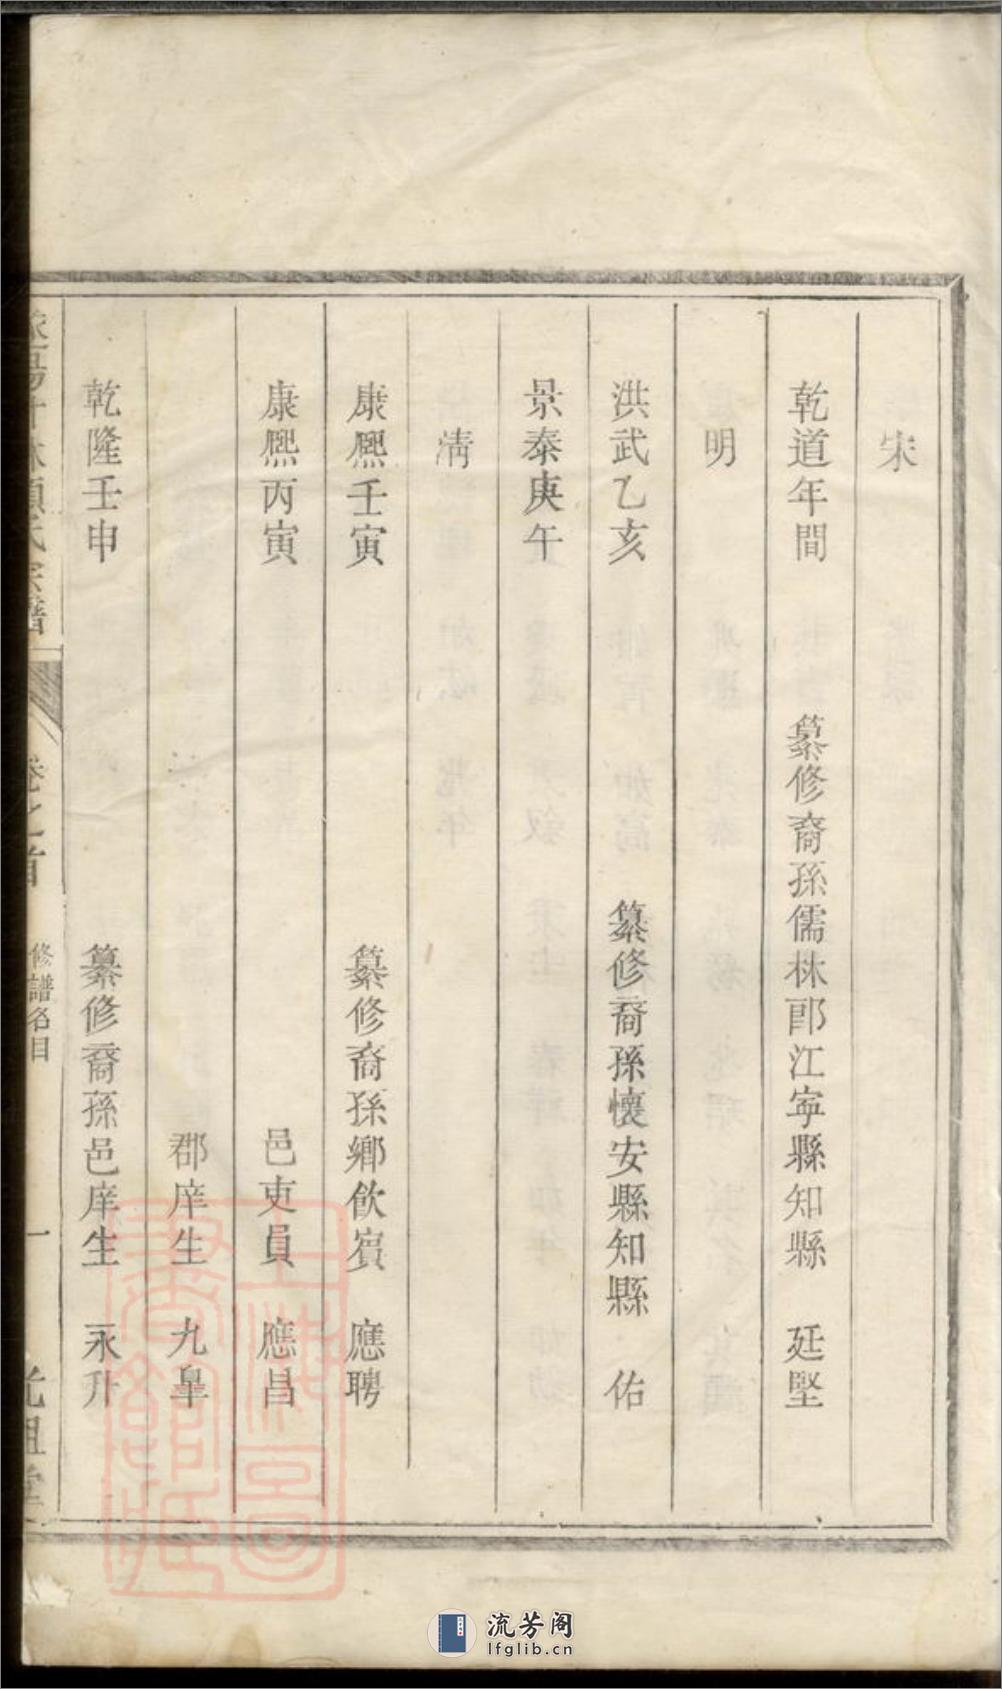 宋
乾道年間 纂修裔孫儒林郎江寧縣知縣 廷堅
明
洪武乙亥 纂修裔孫懷安縣知縣 佑
景泰庚午
清
康熙壬寅 纂修裔孫鄉飲賓 應聘
康熙丙寅 邑吏員 應昌
郡庠生 九皐
乾隆壬申 纂修裔孫邑庠生 永升
項氏宗譜 卷之首 修譜名目 一
上海圖書館藏
流芳阁
lfglib.cn